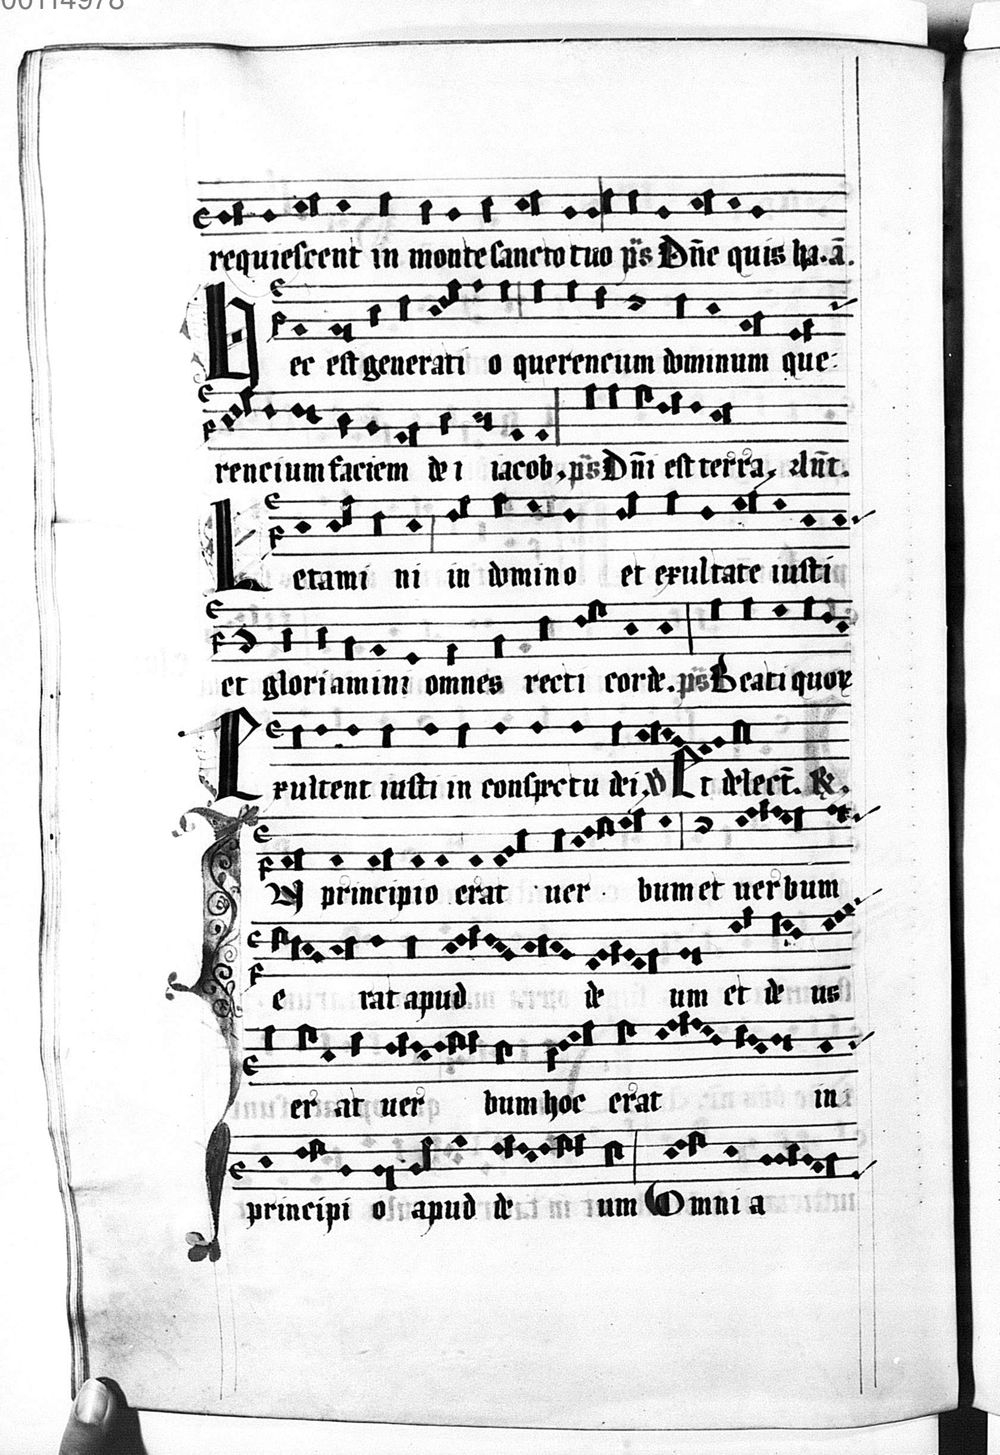 00114978
requiescent in monte sancto tuo ps Dñe quis ha. a.
Hec est generati o querencium dominum que:
rencium faciem de i iacob, ps Dñi est terra, Añt.
Letami ni in domino et exultate iusti
et gloriamini omnes recti corde. ps Beati quor
Exultent iusti in conspectu dei, V Et delect. R.
IN principio erat uer bum et uerbum
e rat apud de um et de us
erat uer bum hoc erat in
principi o apud de um Omni a